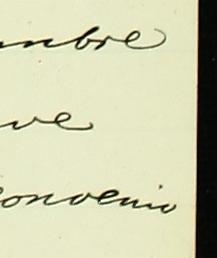 mbre
ve
convenio